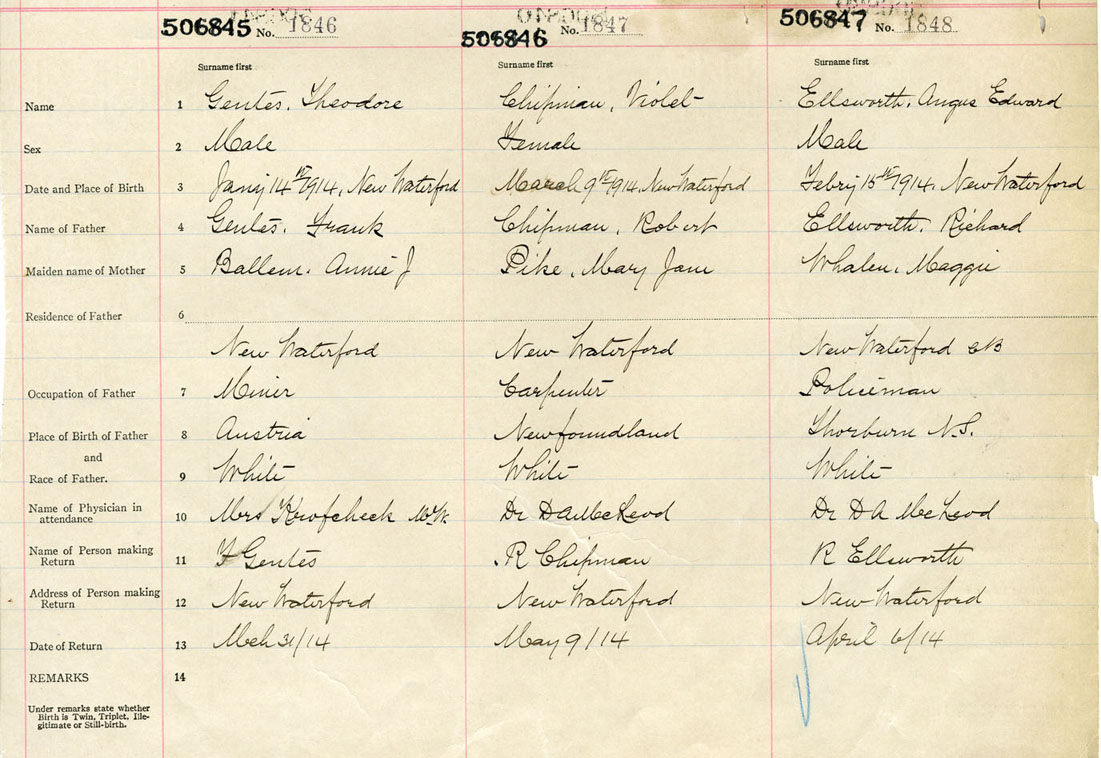 506845 No. 1846 506846 No. 1847 506847 No. 1848
Surname first Surname first Surname first
Name 1 Gentés, Theodore Chipman, Violet Ellsworth, Angus Edward
Sex 2 Male Female Male
Date and Place of Birth 3 Jan'y 14th 1914, New Waterford March 9th 1914, New Waterford Febry 15th 1914, New Waterford
Name of Father 4 Gentés, Frank Chipman, Robert Ellsworth, Richard
Maiden name of Mother 5 Ballem, Annie J Pike, Mary Jane Whalen, Maggie
Residence of Father 6
New Waterford New Waterford New Waterford CB
Occupation of Father 7 Miner Carpenter Policeman
Place of Birth of Father 8 Austria Newfoundland Thorburn N.S.
and
Race of Father. 9 White White White
Name of Physician in
attendance 10 Mrs Dr D A McLeod Dr D A McLeod
Name of Person making
Return 11 F Gentés R Chipman R Ellsworth
Address of Person making
Return 12 New Waterford New Waterford New Waterford
Date of Return 13 Mch 31/14 May 9/14 April 6/14
REMARKS 14
Under remarks state whether
Birth is Twin, Triplet, Ille-
gitimate or Still-birth.